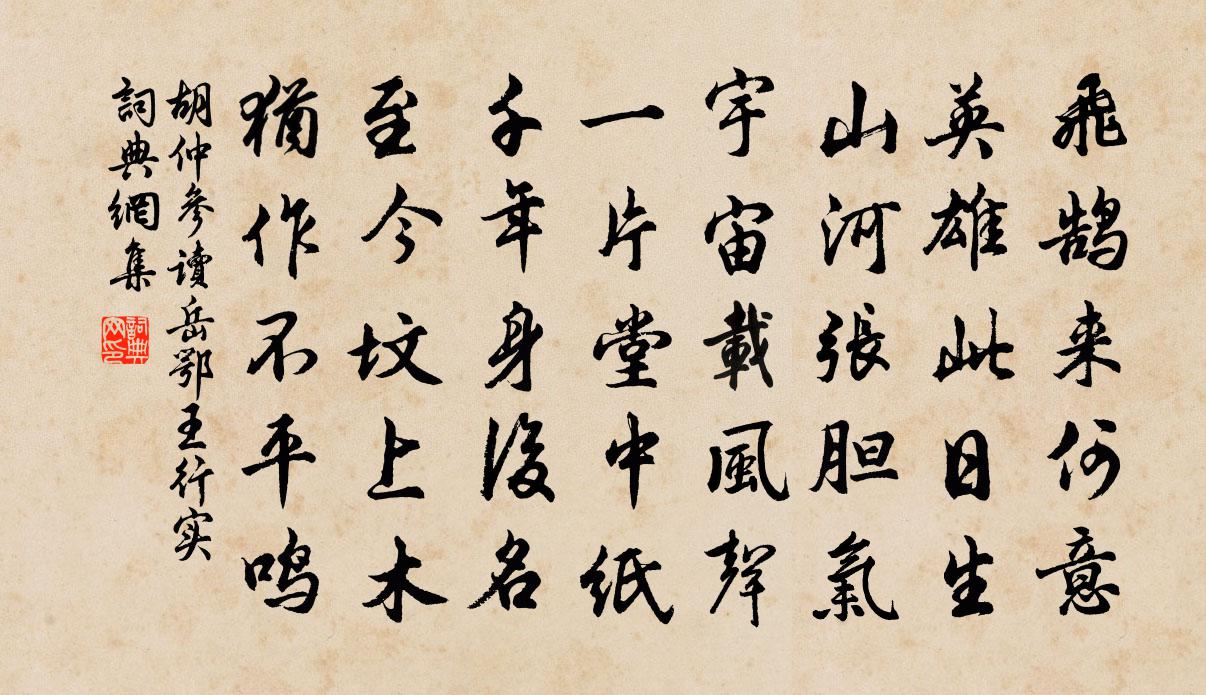 飛鹄来何意
英雄此日生
山河張胆氣
宇宙載風聲
一片堂中紙
千年身後名
至今坟上木
猶作不平鸣
胡仲參讀岳鄂王行实
詞典網集
詞典
网印